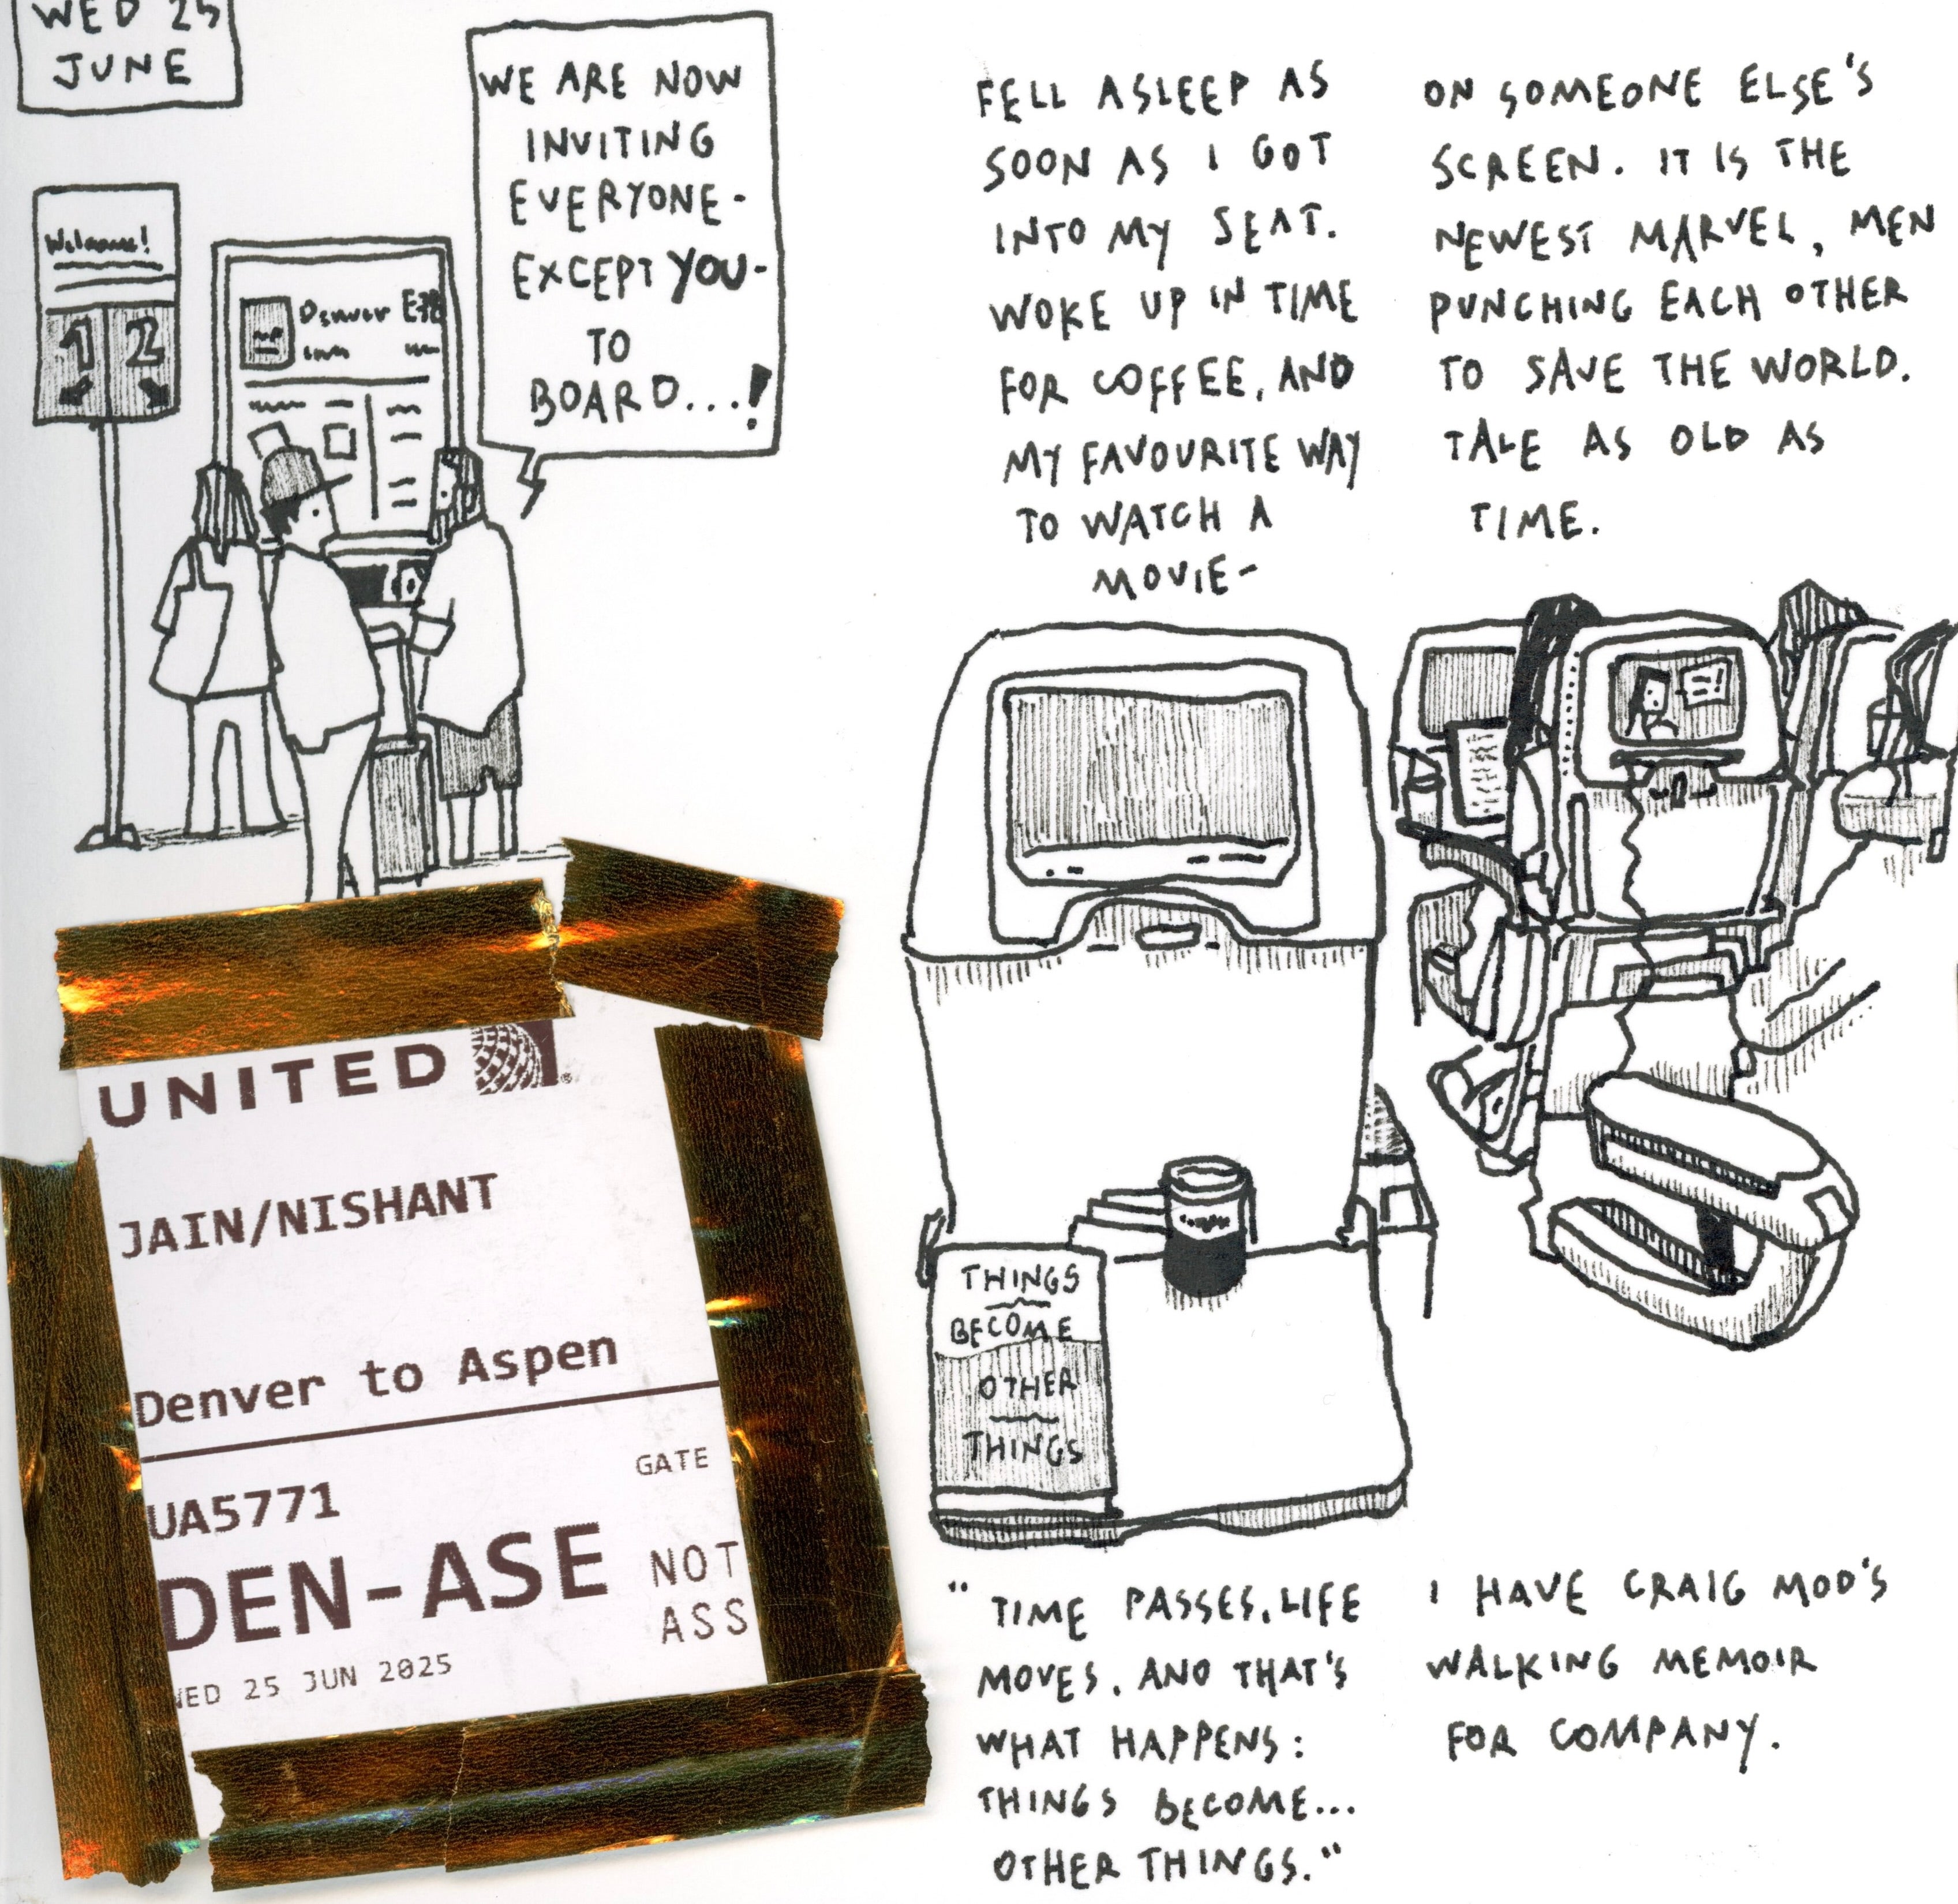 WED 25
JUNE
WE ARE NOW
INVITING
EVERYONE-
EXCEPT YOU-
TO
BOARD...!
Welcome!
1 2
Denver
FELL ASLEEP AS
SOON AS I GOT
INTO MY SEAT.
WOKE UP IN TIME
FOR COFFEE, AND
MY FAVOURITE WAY
TO WATCH A
MOVIE-
ON SOMEONE ELSE'S
SCREEN. IT IS THE
NEWEST MARVEL, MEN
PUNCHING EACH OTHER
TO SAVE THE WORLD.
TALE AS OLD AS
TIME.
UNITED
JAIN/NISHANT
Denver to Aspen
GATE
UA5771
DEN-ASE
NOT
ASS
WED 25 JUN 2025
THINGS
BECOME
OTHER
THINGS
"TIME PASSES. LIFE
MOVES. AND THAT'S
WHAT HAPPENS:
THINGS BECOME...
OTHER THINGS."
I HAVE CRAIG MOD'S
WALKING MEMOIR
FOR COMPANY.